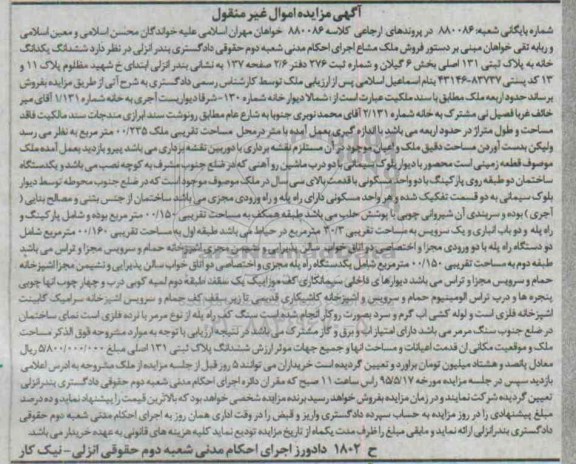 آگهی مزایده اموال غیر منقول
شماره بایگانی شعبه: ۸۸۰۰۸۶ در پرونده‌های ارجاعی کلاسه ۸۸۰۰۸۶ خواهان مهران اسلامی علیه خواندگان محسن اسلامی و معین اسلامی
و ربابه تقی خواهان مبنی بر دستور فروش ملک مشاع اجرای احکام مدنی شعبه دوم حقوقی دادگستری بندر انزلی در نظر دارد ششدانگ یکدانگ
خانه به پلاک ثبتی ۱۳۱ اصلی بخش ۶ گیلان و شماره ثبت ۳۷۶ دفتر ۲/۶ صفحه ۱۳۷ به نشانی بندر انزلی ابتدای خ شهید مظلوم پلاک ۱۱ و
۱۳ کد پستی ۸۳۷۳۷-۴۳۱۴۶ بنام اسماعیل اسلامی پس از ارزیابی ملک توسط کارشناس رسمی دادگستری به شرح آتی از طریق مزایده بفروش
برساند حدود اربعه ملک مطابق با سند ملکیت عبارت است از: شمالا دیوار خانه شماره ۱۳۰- شرقا دیواریست آجری به خانه شماره ۱/۱۳۱ آقای میر
خالف غربا فصیل نی مشترک به خانه شماره ۲/۱۳۱ آقای محمد نویری جنوبا به شارع عام مطابق رونوشت سند ابرازی مندرجات سند مالکیت فاقد
مساحت و طول متراژ در حدود اربعه می باشد با اندازه گیری بعمل آمده با متر در محل مساحت تقریبی ملک ۰۰/۲۳۵ متر مربع به نظر می رسد
ولیکن بدست آوردن مساحت دقیق ملک و اعیان موجود در آن مستلزم نقشه برداری با دوربین نقشه برداری می باشد پیرو بازدید بعمل آمده ملک
موصوف قطعه زمینی است محصور با دیوار بلوک سیمانی با دو درب ماشین رو آهنی که در ضلع جنوب مشرف به کوچه نصب می باشد و یکدستگاه
ساختمان دو طبقه روی پارکینگ با دو واحد مسکونی با قدمت بالای سی سال در ملک موصوف موجود است که در ضلع جنوب محوطه توسط دیوار
بلوک سیمانی به دو قسمت تفکیک شده و هر واحد مسکونی دارای راه پله و راه ورودی مجزی می باشد ساختمان از جنس بتنی و مصالح بنایی (
آجری ) بوده و سربندی آن شیروانی چوبی با پوشش حلب می باشد طبقه همکف به مساحت تقریبی ۰۰/۱۵۰ متر مربع بوده و شامل پارکینگ و
راه پله و دو باب انباری و یک سرویس به مساحت تقریبی ۳۰/۳ مترمربع در حیاط می باشد طبقه اول به مساحت تقریبی ۰۰/۱۶۰ متر مربع شامل
دو دستگاه راه پله با دو ورودی مجزا و اختصاصی دو اتاق خواب سالن پذیرایی و نشیمن مجزی آشپزخانه حمام و سرویس مجزا و تراس می باشد
طبقه دوم به مساحت تقریبی ۰۰/۱۵۰ متر مربع شامل یکدستگاه راه پله مجزی و اختصاصی دو اتاق خواب سالن پذیرایی و نشیمن مجزا آشپزخانه
حمام و سرویس مجزا و تراس می باشد دیوارهای داخلی سیمانکاری کف موزاییک یک سقف طبقه دوم لمبه کوبی درب و چهار چوب آنها چوبی
پنجره ها و درب تراس آلومینیوم حمام و سرویس و آشپزخانه کاشیکاری قدیمی تا زیر سقف کف حمام و سرویس آشپزخانه سرامیک کابینت
آشپزخانه فلزی است و لوله کشی آب گرم و سرد بصورت روکار انجام شده است سنگ کف راه پله از نوع مرمر با نرده فلزی است نمای ساختمان
در ضلع جنوب سنگ مرمر می باشد دارای امتیاز آب و برق و گاز مشترک می باشد در نتیجه ارزیابی با توجه به موارد مشروحه فوق الذکر مساحت
ملک و موقعیت مکانی آن قدمت اعیانات و مساحت آنها و جمیع جهات موثر ارزش ششدانگ پلاک ثبتی ۱۳۱ اصلی مبلغ ۵/۸۰۰/۰۰۰/۰۰۰ ریال
معادل پانصد و هشتاد میلیون تومان برآورد و تعیین گردیده است خریداران می توانند ۵ روز قبل از جلسه مزایده از ملک مشروحه به آدرس اعلامی
بازدید سپس در جلسه مزایده مورخه ۹۵/۵/۱۷ راس ساعت ۱۱ صبح که مقر آن دایره اجرای احکام مدنی شعبه دوم حقوقی دادگستری بندرانزلی
تعیین گردیده شرکت نمایند و در زمان مزایده بفروش خواهد رسید برنده مزایده شخصی خواهد بود که بالاترین قیمت را پیشنهاد نماید و ده درصد
مبلغ پیشنهادی را در روز مزایده به حساب سپرده دادگستری واریز و قبض را در وقت اداری همان روز به اجرای احکام مدنی شعبه دوم حقوقی
دادگستری بندرانزلی ارائه نماید و مابقی مبلغ را ظرف مدت یکماه از تاریخ مزایده تودیع نماید کلیه هزینه های قانونی به عهده خریدار می باشد.
ح ۱۸۰۲ دادورز اجرای احکام مدنی شعبه دوم حقوقی انزلی- نیک کار